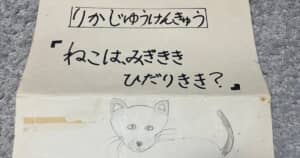 りかじゆうけんきゅう
「ねこは、みぎきき
ひだりきき?」